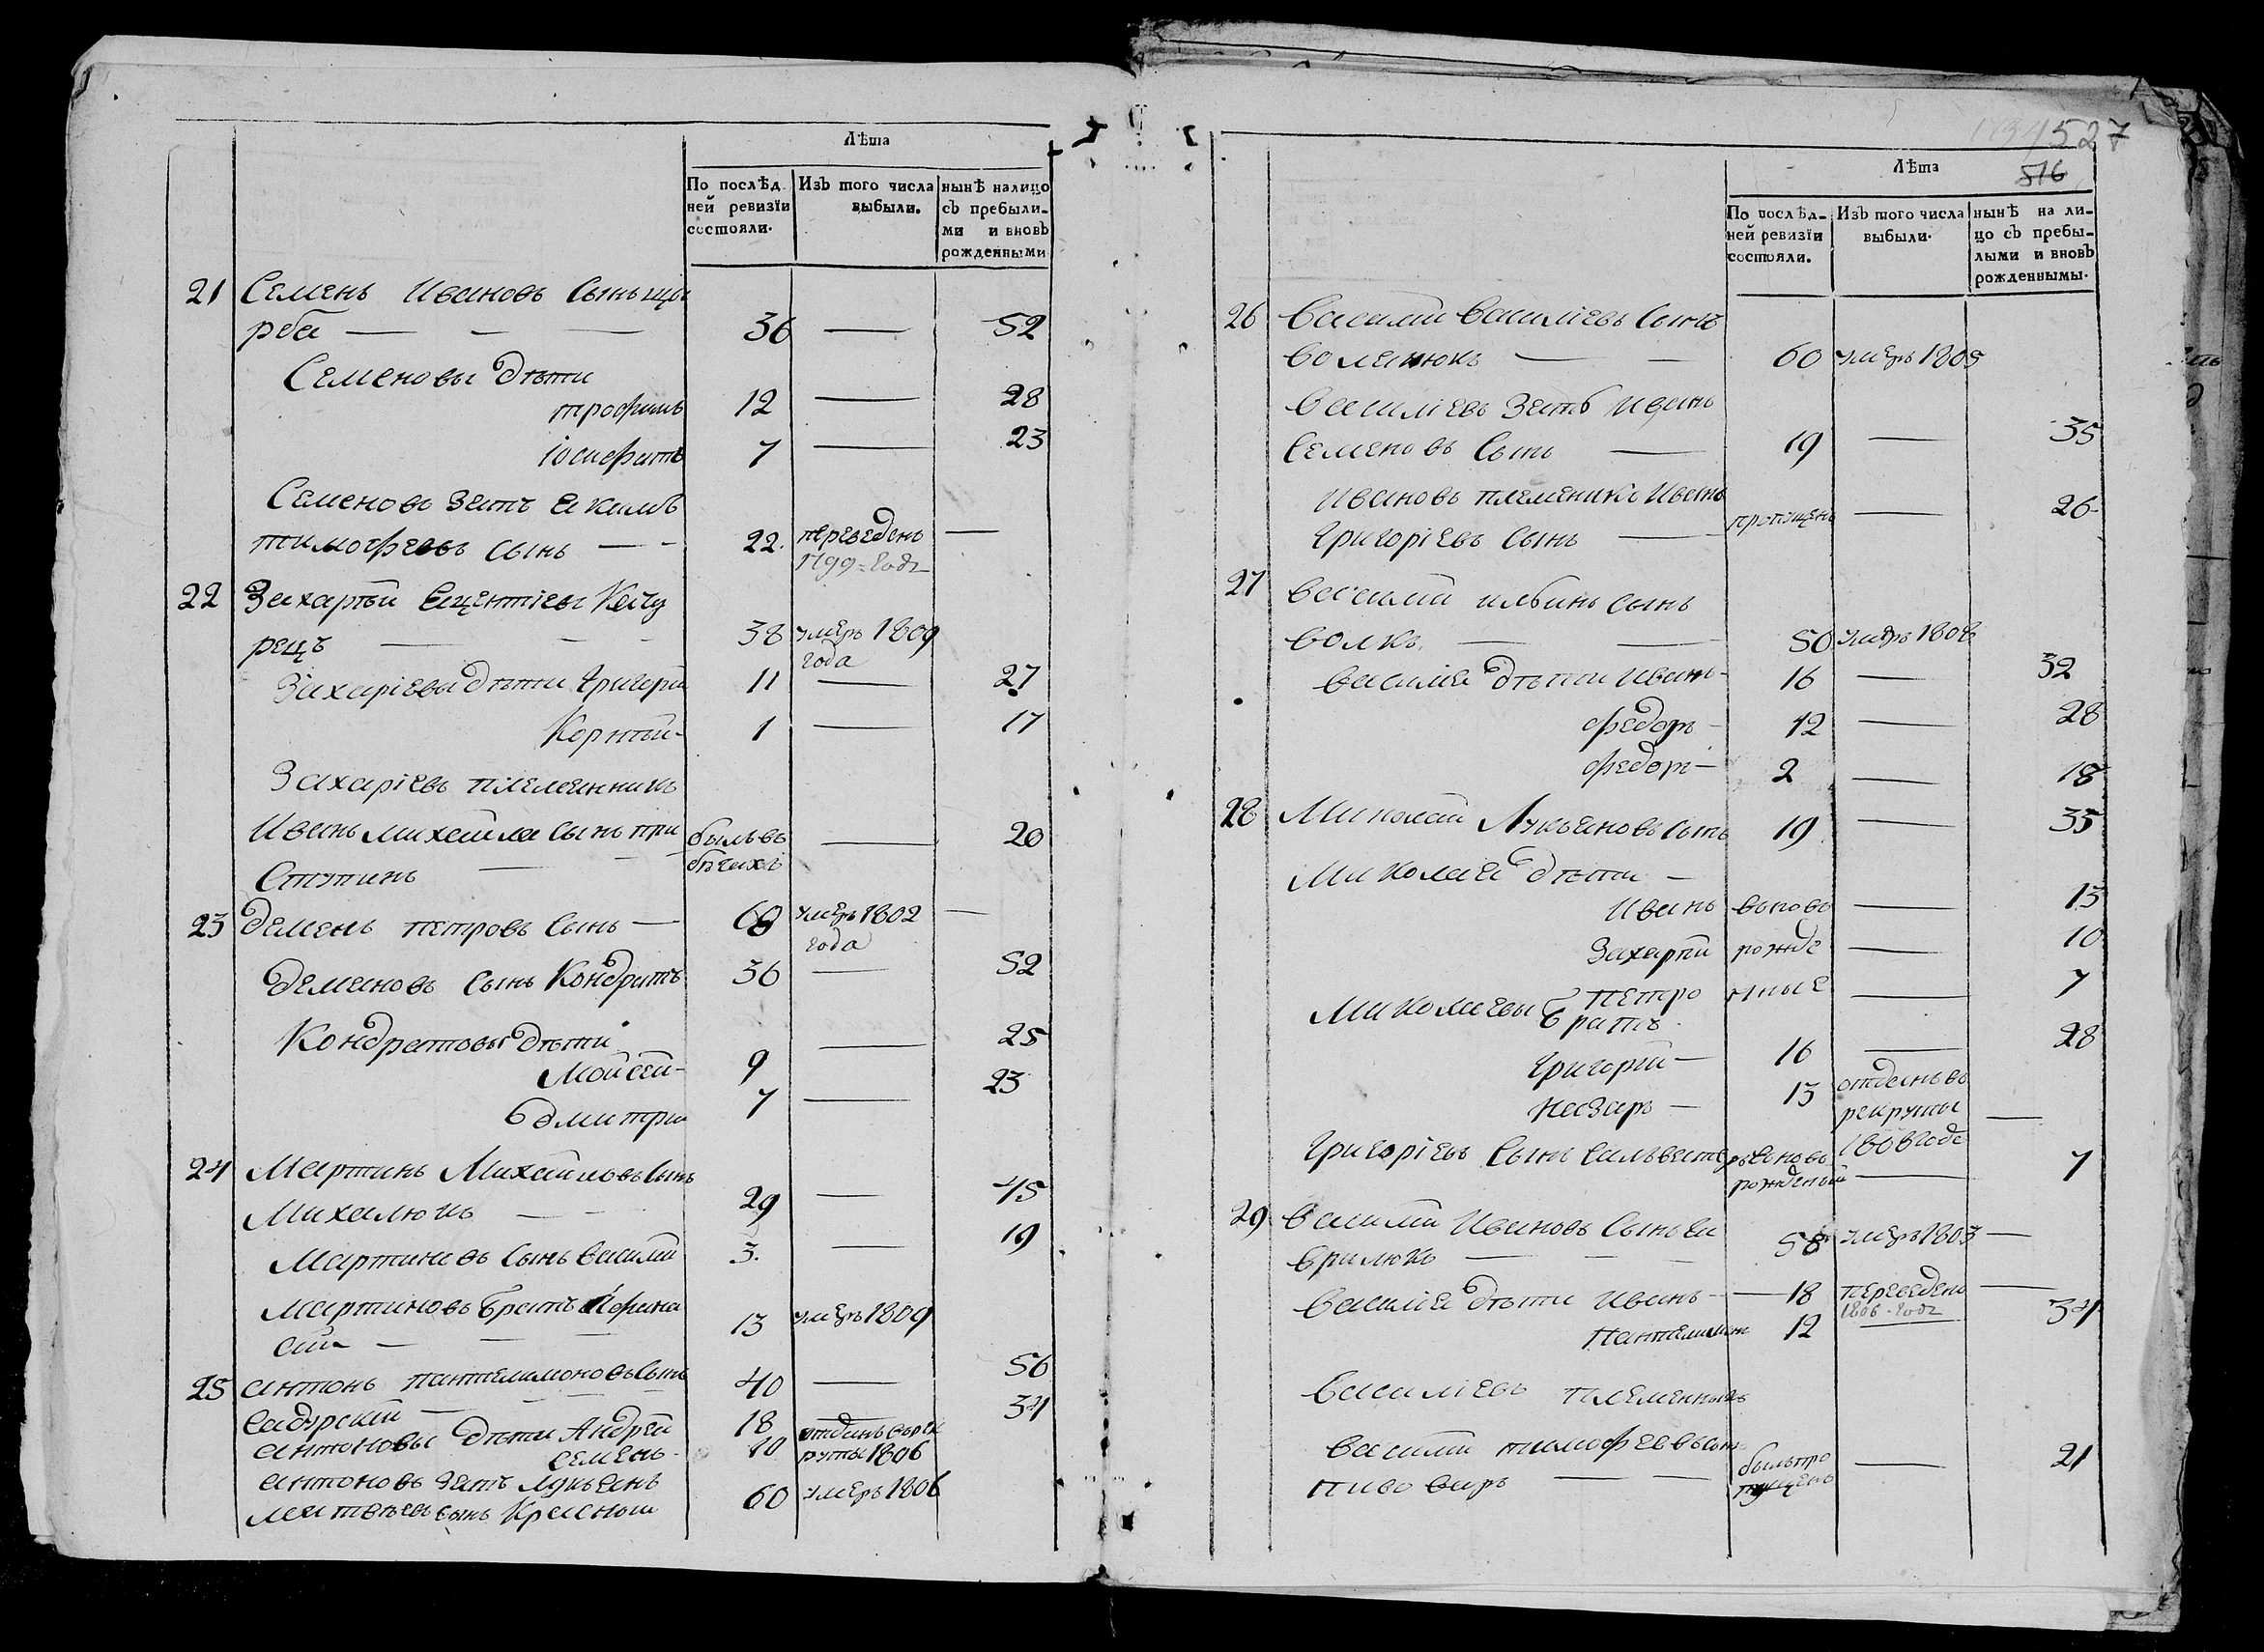 Лѣта
По послѣд.
ней ревизїи
состояли.
Изъ того числа
выбыли.
нынѣ налицо
съ пребыли-
ми и вновь
рожденными
21 Семенъ Ивановъ Сынъ
рба — — — 36 — 52
Семеновы дѣти
трофимъ 12 — 28
іосифатъ 7 — 23
Семеновъ Зять Якимъ
тимофеевъ сынъ — - 22. переведенъ —
1799 = годъ
22 Захарій
рецъ — - - 38 умеръ 1809
года
Захаріевы дѣти григорій 11 — 27
Корнѣй - 1 — 17
Захаріевъ племянникъ
Иванъ михайла сынъ при былъ въ — 20
Ступинъ — - - бѣгахъ
23 деменъ петровъ Сынъ — 60 умеръ 1802 —
года
деменовъ сынъ Кондратъ 36 — 52
Кондратовы дѣти
Мойсей - 9 — 25
дмитрій 7 — 23
24 Мартинъ Михайловъ Сынъ
Михалюкъ — - - 29 — 45
Мартиновъ Сынъ василій 3. — 19
Мартиновъ братъ Афана
сій — — — 13 умеръ 1809
25 антонъ пантелимоновъ Сынъ 40 — 56
Садурскій — - -
антоновы дѣти Андрей 18 — 34
Семенъ - 10 отданъ въ рек
руты 1806
антоновъ зять лукъянъ
матвѣевъ сынъ Красный 60 умеръ 1806
527
516
Лѣта
По послѣд-
ней ревизїи
состояли.
Изъ того числа
выбыли.
нынѣ на ли-
цо съ пребы-
лыми и вновь
рожденнымы.
26 Василій Василіевъ Сынъ
Воленюкъ — — 60 умеръ 1805
Василіевъ Зять Иванъ
Семеновъ Сынъ — 19 — 35
Ивановъ племеникъ Иванъ
Григоріевъ Сынъ — пропущенъ — 26
27 Василий ильинъ Сынъ
Волкъ. — — 50 умеръ 1808
Василія дѣти Иванъ - 16 — 32
Федоръ - 12 — 28
Федоръ - 2 — 18
28 Миколай Лукъяновъ Сынъ 19 — 35
Миколая дѣти —
Иванъ вьновь — 13
Захарій рожде — 10
Петро нные — 7
Миколаевы братъ
Григорій - 16 — 28
Назаръ — 13 отданъ въ
рекруты —
1808 годе
Григоріевъ Сынъ Сильвестръ вьновь
рожденый — 7
29 Василій Ивановъ Сынъ Га
врилюкъ — — - 58 умеръ 1803 —
Василія дѣти Иванъ - — 18 переведенъ —
1806 - годъ
Пантелимонъ 12 — 34
Василіевъ племенникъ
Василій тимофеевъ сынъ
пивоваръ — — былъ про — 21
пущенъ